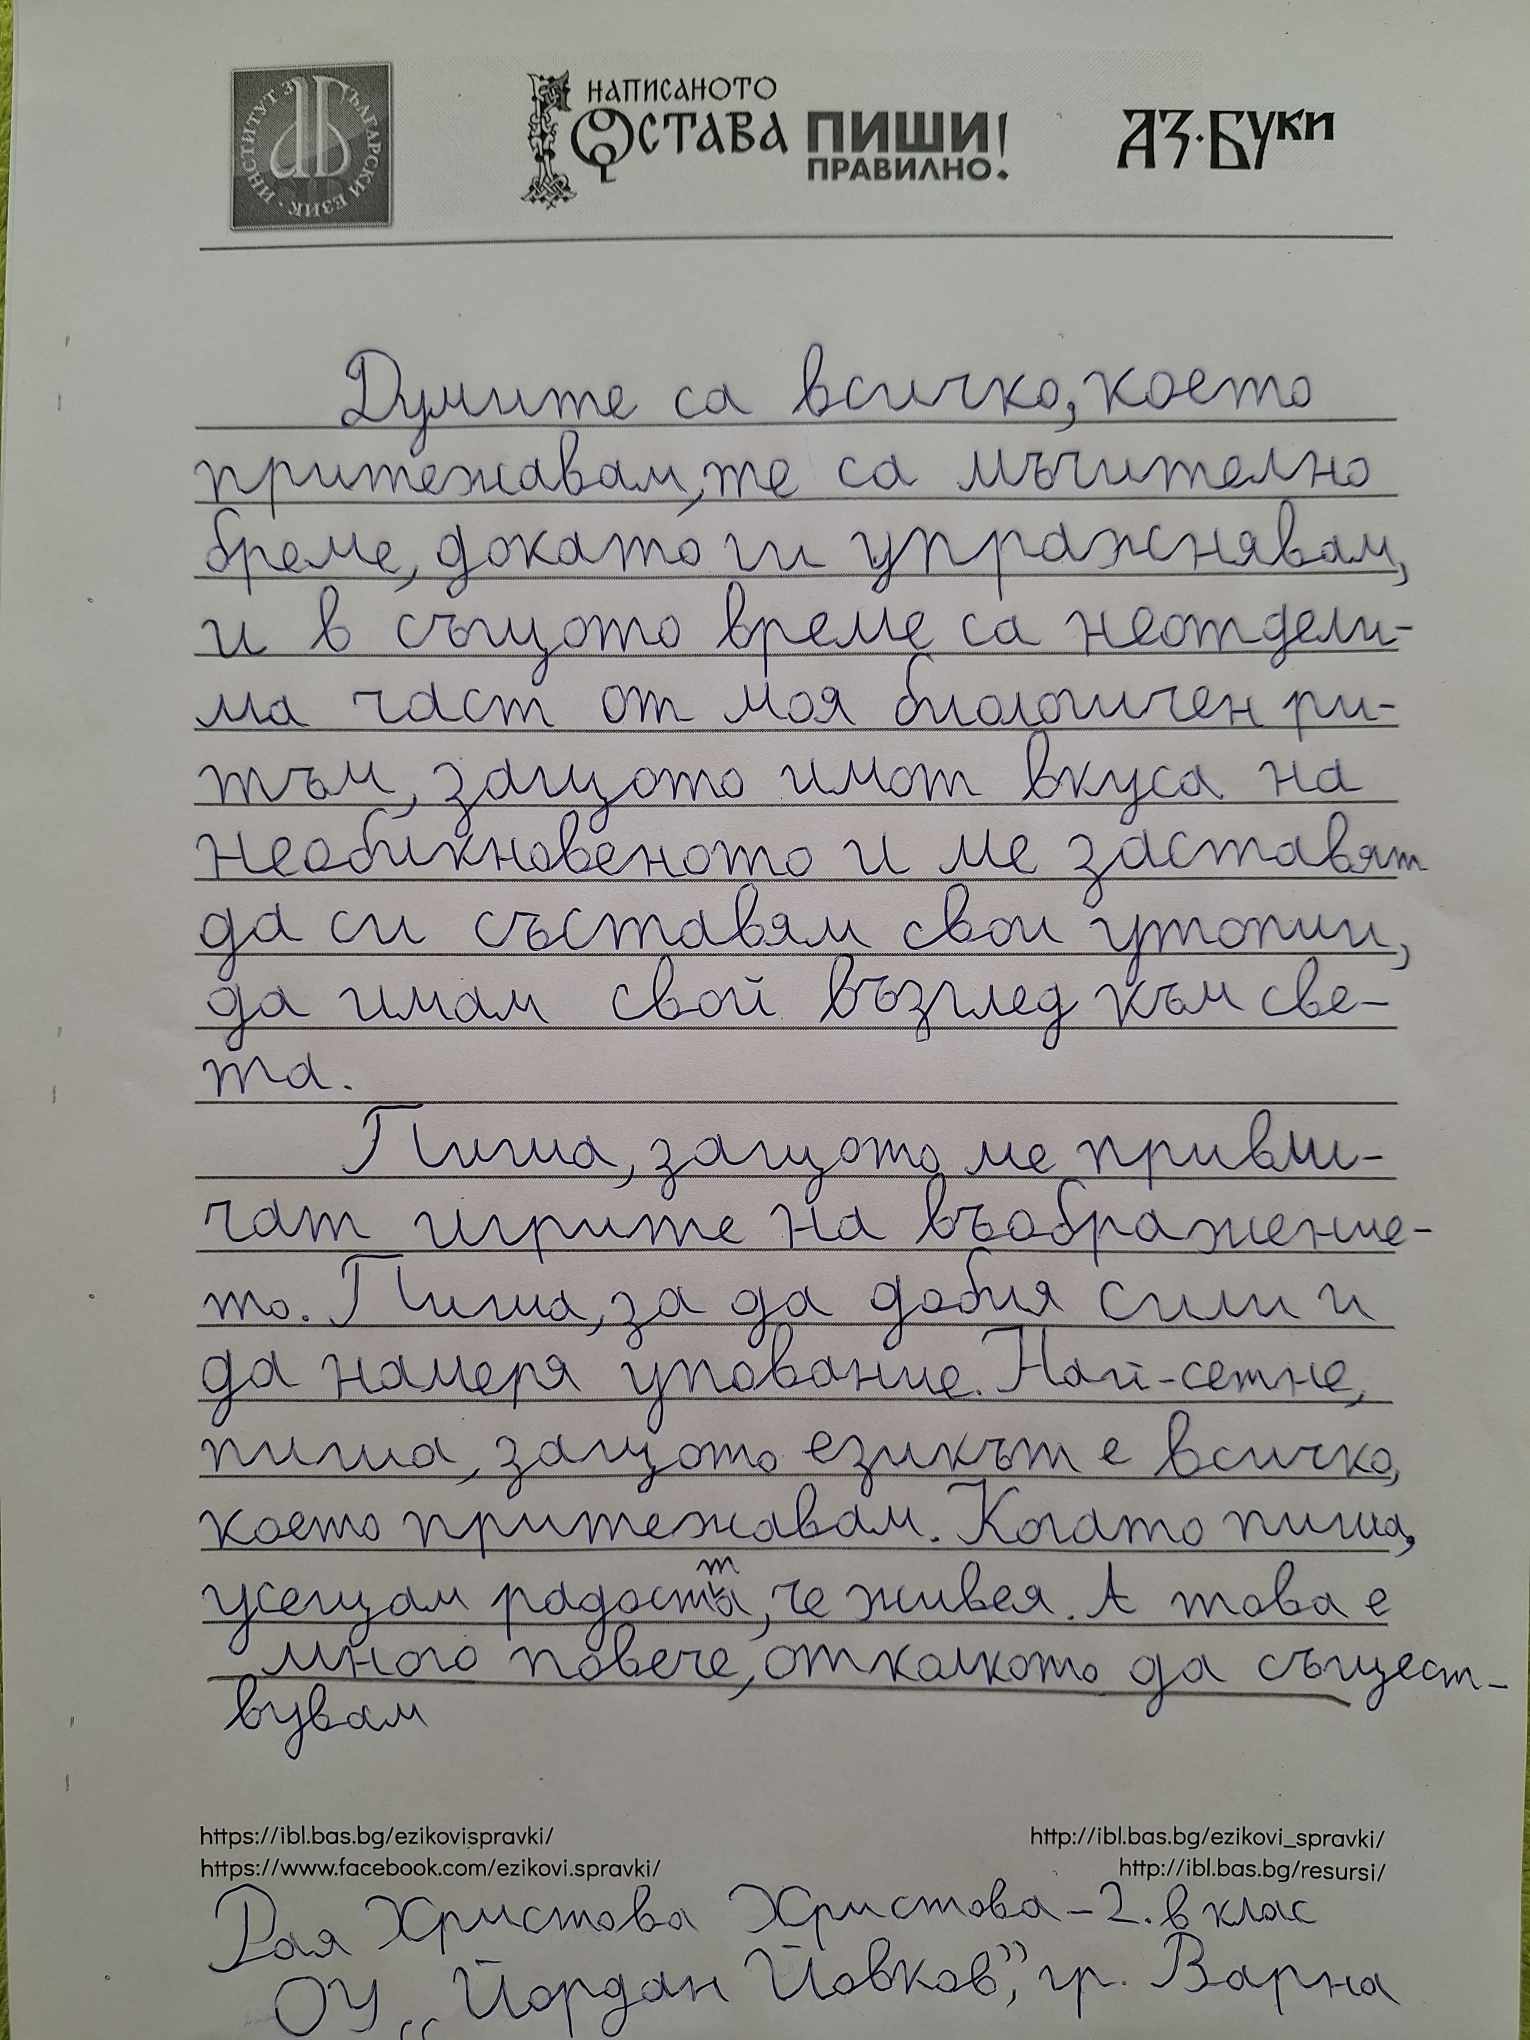 ИНСТИТУТ ЗА БЪЛГАРСКИ ЕЗИК
НАПИСАНОТО
ОСТАВА ПИШИ
ПРАВИЛНО!
АЗ·БУКИ
Думите са всичко, което
притежавам, те са мъчително
бреме, докато ги упражнявам,
и в същото време са неотдели-
ма част от моя биологичен ри-
тъм, защото имот вкуса на
необикновеното и ме заставят
да си съставям свои утопии,
да имам свой възглед към све-
та.
Пиша, защото ме привли-
чат игрите на въображение-
то. Пиша, за да добия сили и
да намеря упование. Най-сетне,
пиша, защото езикът е всичко,
което притежавам. Когато пиша,
усещам радостта, че живея. А това е
много повече, отколкото да същест-
вувам
https://ibl.bas.bg/ezikovispravki/
http://ibl.bas.bg/ezikovi_spravki/
https://www.facebook.com/ezikovi.spravki/
http://ibl.bas.bg/resursi/
Рая Христова Христова - 2. в клас
ОУ „Йордан Йовков”, гр. Варна